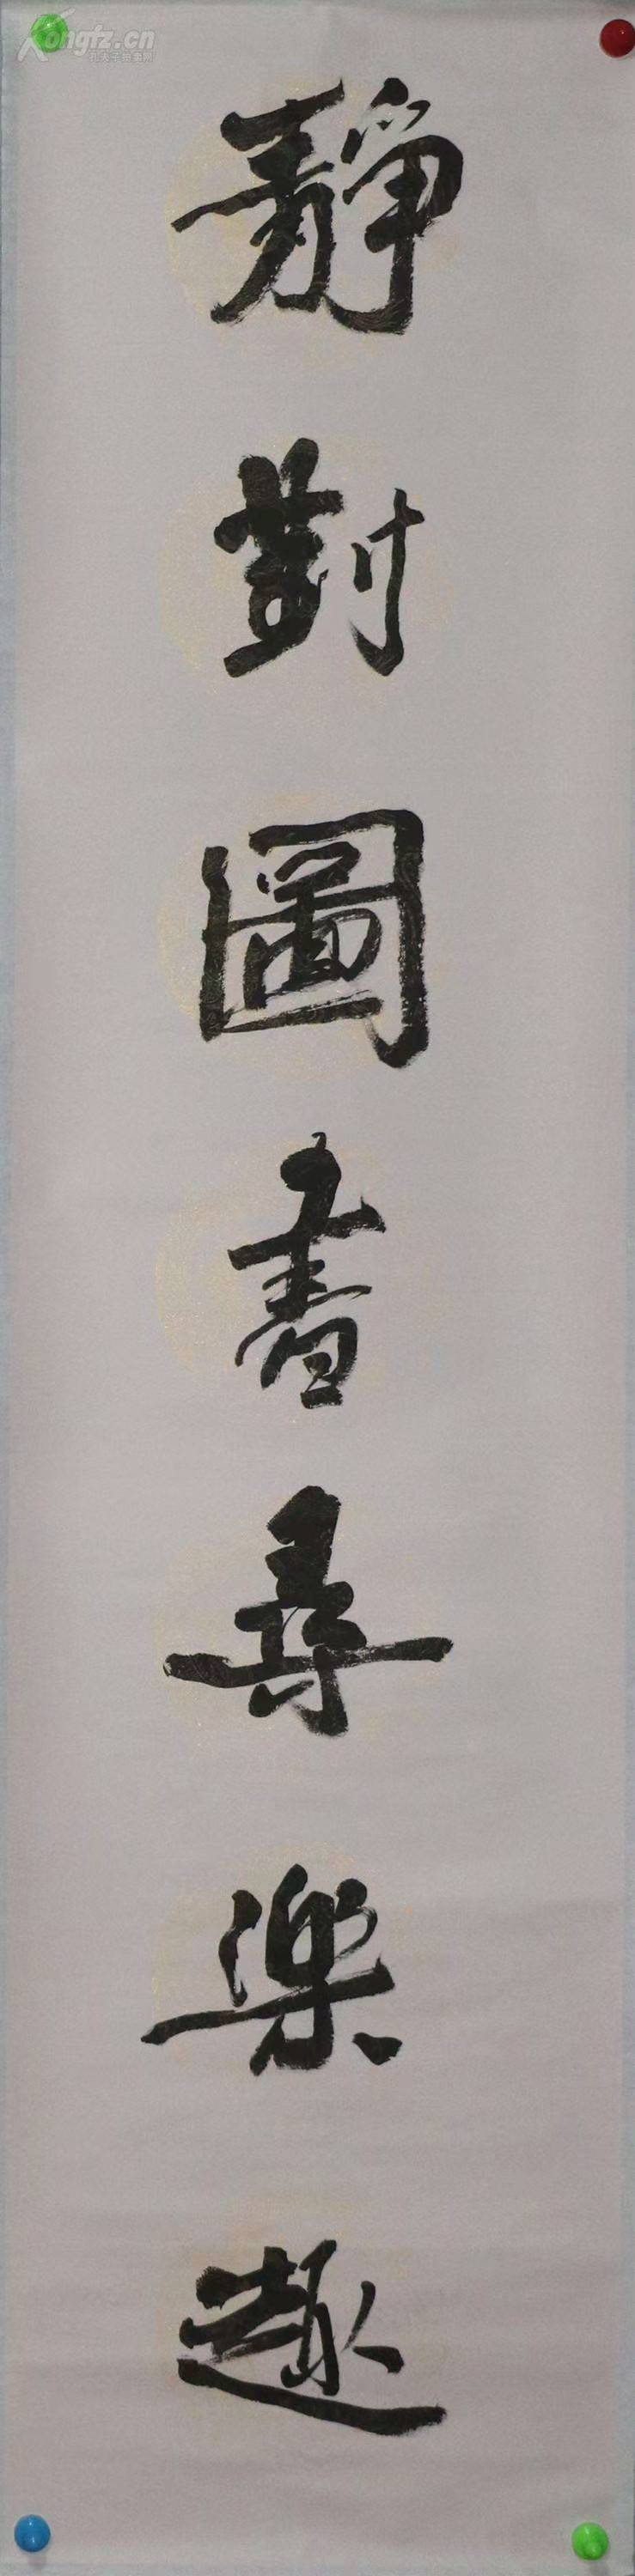 Kongfz.cn
孔夫子旧书网
靜對圖書尋樂趣